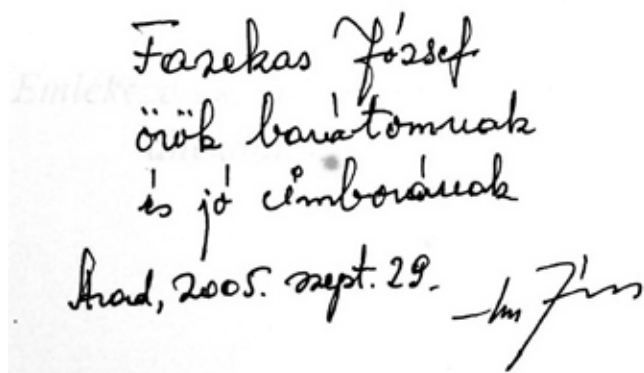 Fazekas József
örök barátomnak
és jó cimborának
Arad, 2005. szept. 29.
Emléke